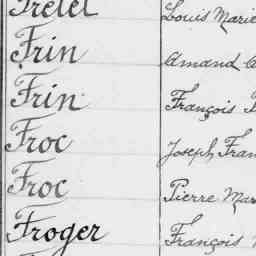 Frelet Louis Marie
Frin Amand
Frin François
Froc Joseph Fran
Froc Pierre Mar
Froger François